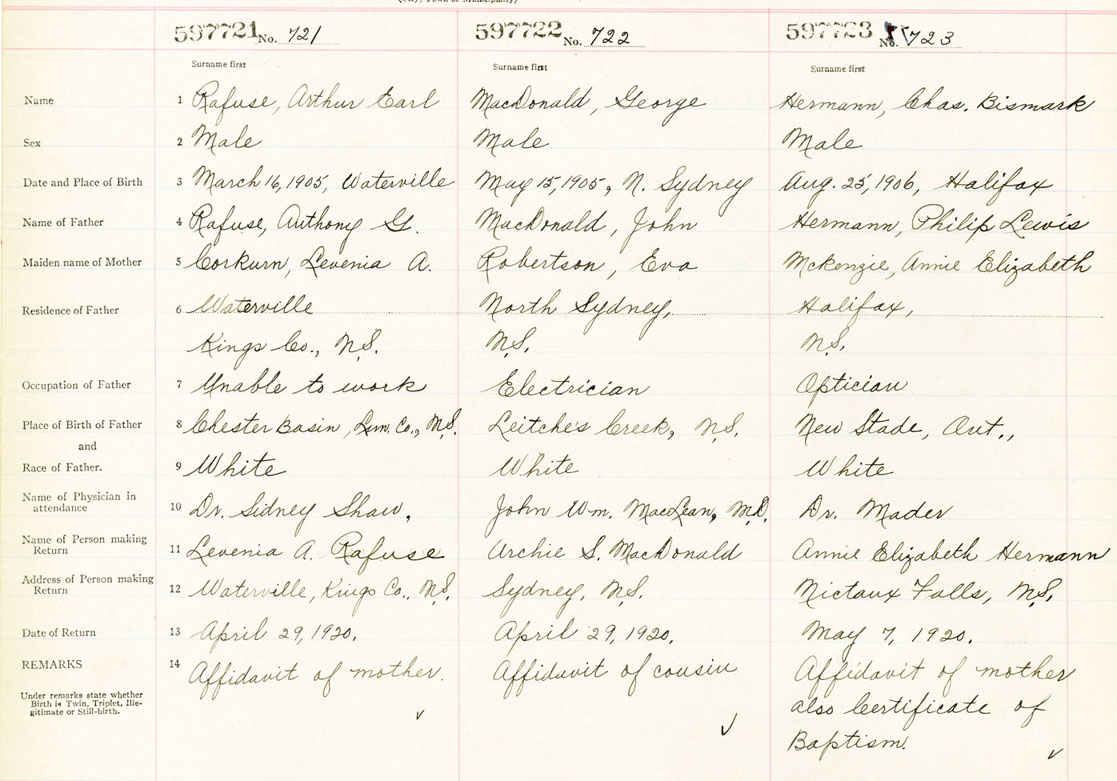 (City, Town or Municipality)
597721 No. 721 597722 No. 722 597723 No. 723
Surname first Surname first Surname first
Name 1 Rafuse, Arthur Earl MacDonald, George Hermann, Chas. Bismark
Sex 2 Male Male Male
Date and Place of Birth 3 March 16, 1905, Waterville May 15, 1905, N. Sydney Aug. 25, 1906, Halifax
Name of Father 4 Rafuse, Anthony G. MacDonald, John Hermann, Philip Lewis
Maiden name of Mother 5 Corkum, Levenia A. Robertson, Eva McKenzie, Annie Elizabeth
Residence of Father 6 Waterville North Sydney, Halifax,
Kings Co., N.S. N.S. N.S.
Occupation of Father 7 Unable to work Electrician Optician
Place of Birth of Father 8 Chester Basin, Lun. Co., N.S. Leitche's Creek, N.S. New Stade, Ont.,
and
Race of Father. 9 White White White
Name of Physician in
attendance 10 Dr. Sidney Shaw, John Wm. MacLean, M.D. Dr. Mader
Name of Person making
Return 11 Levenia A. Rafuse Archie S. MacDonald Annie Elizabeth Hermann
Address of Person making
Return 12 Waterville, Kings Co., N.S. Sydney, N.S. Nictaux Falls, N.S.
Date of Return 13 April 29, 1920. April 29, 1920. May 7, 1920.
REMARKS 14 Affidavit of mother. Affidavit of cousin Affidavit of mother
Under remarks state whether
Birth is Twin, Triplet, Ille-
gitimate or Still-birth.
also Certificate of
Baptism.